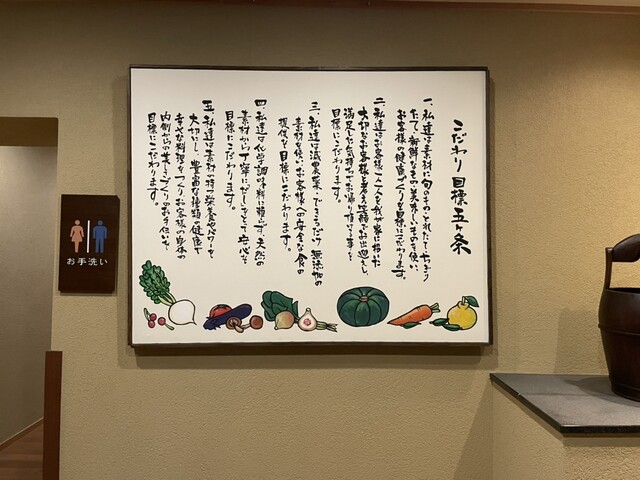 こだわり目標五ヶ条
一、私達は素材に旬のもの・とれたて・ちぎり
たて・新鮮なもの・美味しいものを使い、
お客様の健康づくりを目標にこだわります。
二、私達はお客様一人一人を我が家に招いた
大切なお客様と考え笑顔でお出迎えし、
満足した気持ちでお帰り頂ける事を
目標にこだわります。
三、私達は減農薬・できるだけ無添加の
素材を使い、お客様への安全な食の
提供を目標にこだわります。
四、私達は化学調味料に頼らず、天然の
素材から丁寧にだしをとって安心を
目標にこだわります。
五、私達は素材の持つ栄養やパワーを
大切にし、豊富な種類の健康で
幸せな料理をつくり、お客様の身体の
内側からの美しさづくりのお手伝いを
目標にこだわります。
お手洗い